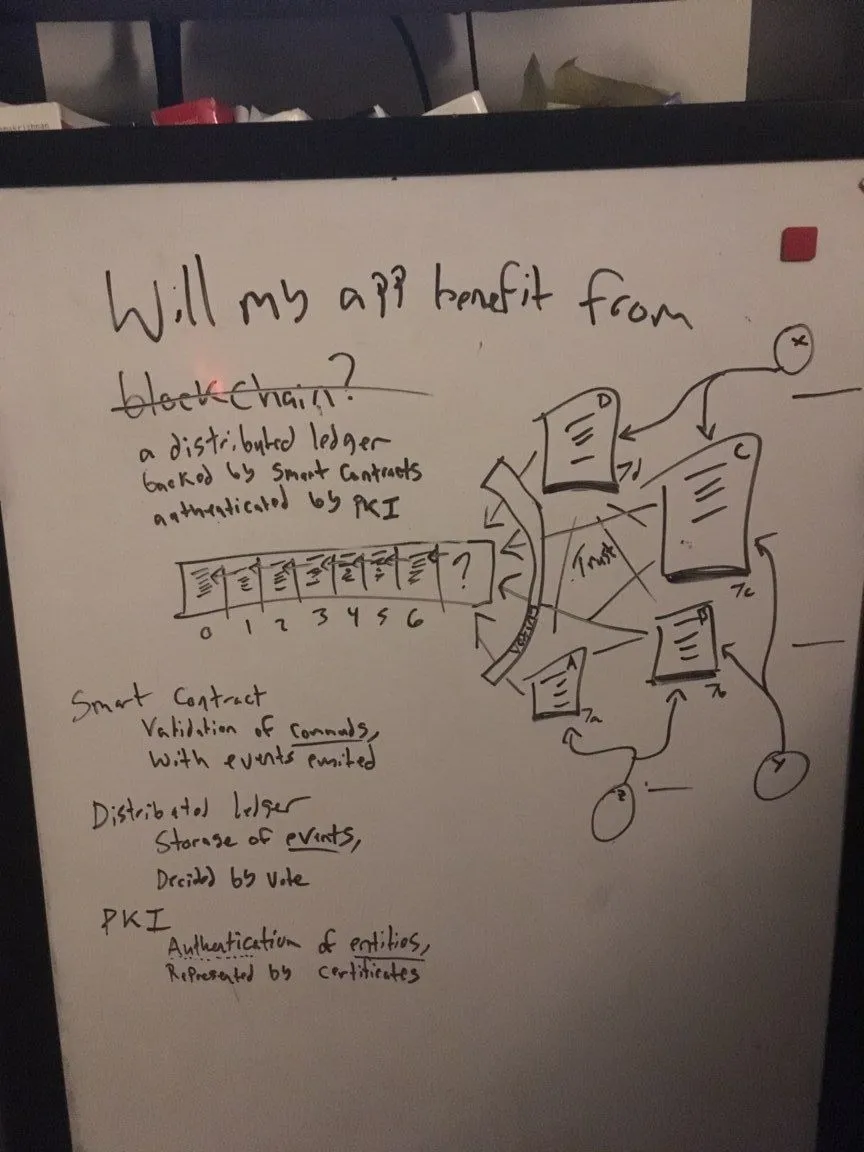 Will my app benefit from
blockchain?
a distributed ledger
backed by Smart Contracts
authenticated by PKI
0 1 2 3 4 5 6
?
D
7d
C
7c
Trust
Voting
B
7b
A
7a
X
Y
Z
Smart Contract
Validation of commads,
With events emited
Distributed ledger
Storage of events,
Decided by vote
PKI
Authentication of entities,
Represented by certificates